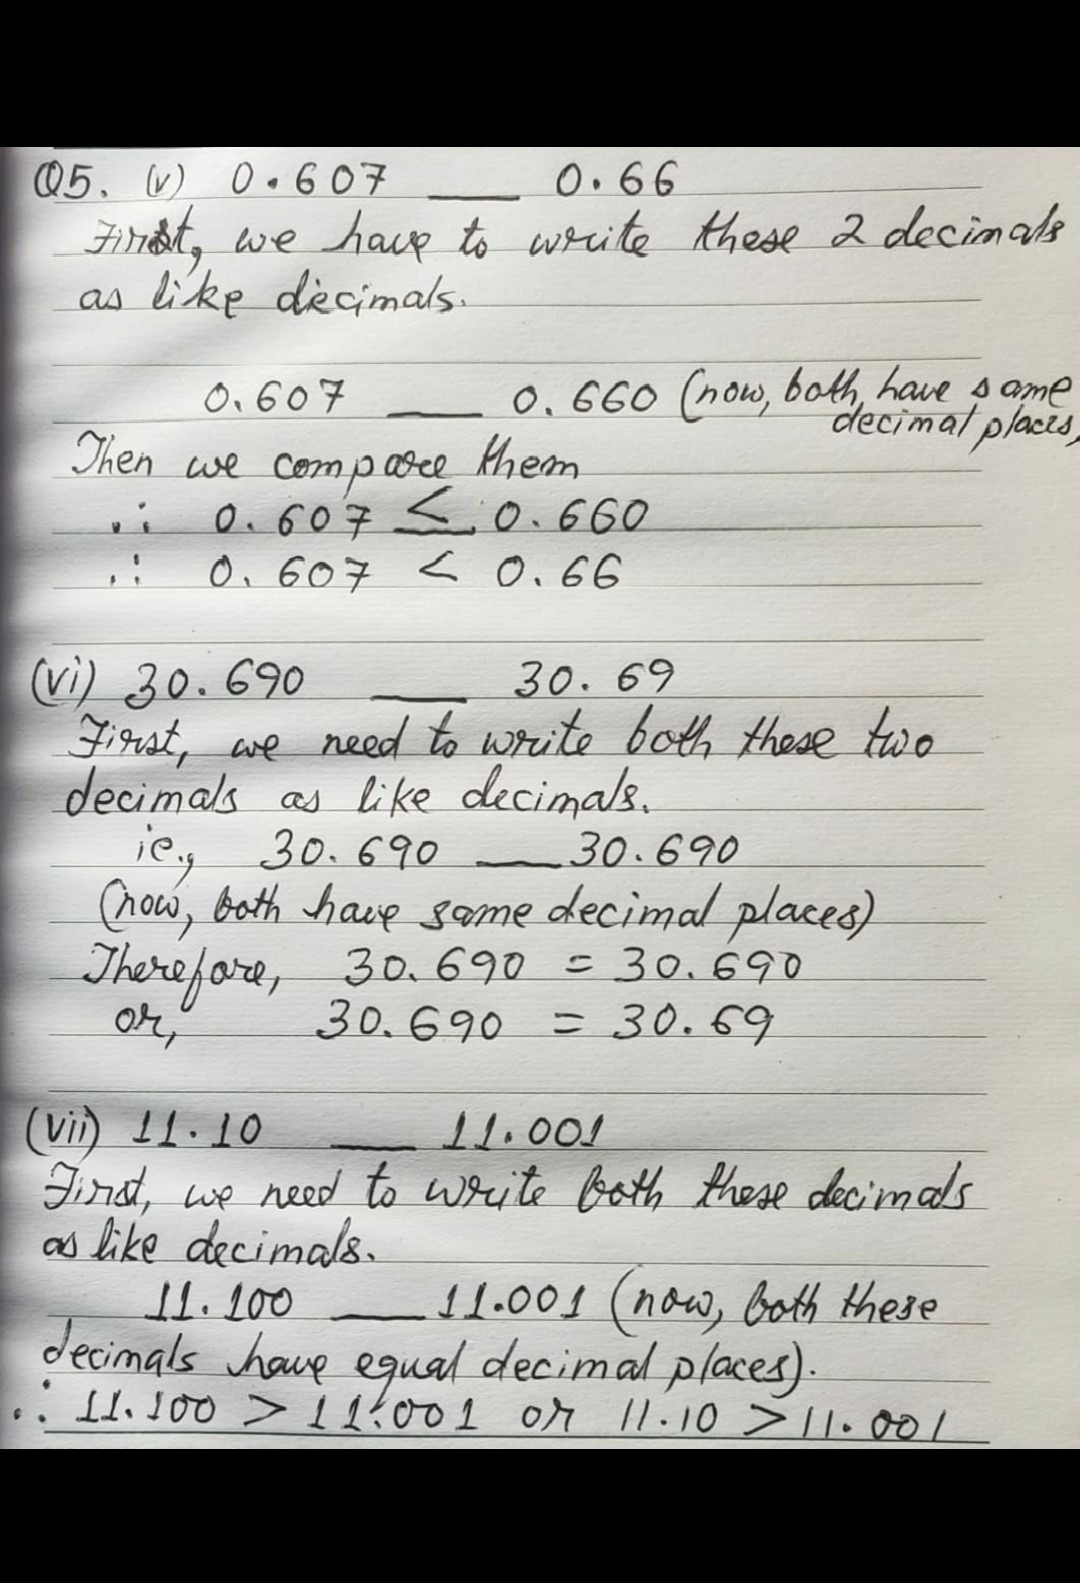 Q5. (v) 0.607 ___ 0.66
First, we have to write these 2 decimals
as like decimals.
0.607 ___ 0.660 (now, both have same
decimal places)
Then we compare them
∴ 0.607 < 0.660
∴ 0.607 < 0.66
(vi) 30.690 ___ 30.69
First, we need to write both these two
decimals as like decimals.
ie., 30.690 ___ 30.690
(now, both have same decimal places)
Therefore, 30.690 = 30.690
or, 30.690 = 30.69
(vii) 11.10 ___ 11.001
First, we need to write both these decimals
as like decimals.
11.100 ___ 11.001 (now, both these
decimals have equal decimal places).
∴ 11.100 > 11.001 or 11.10 > 11.001